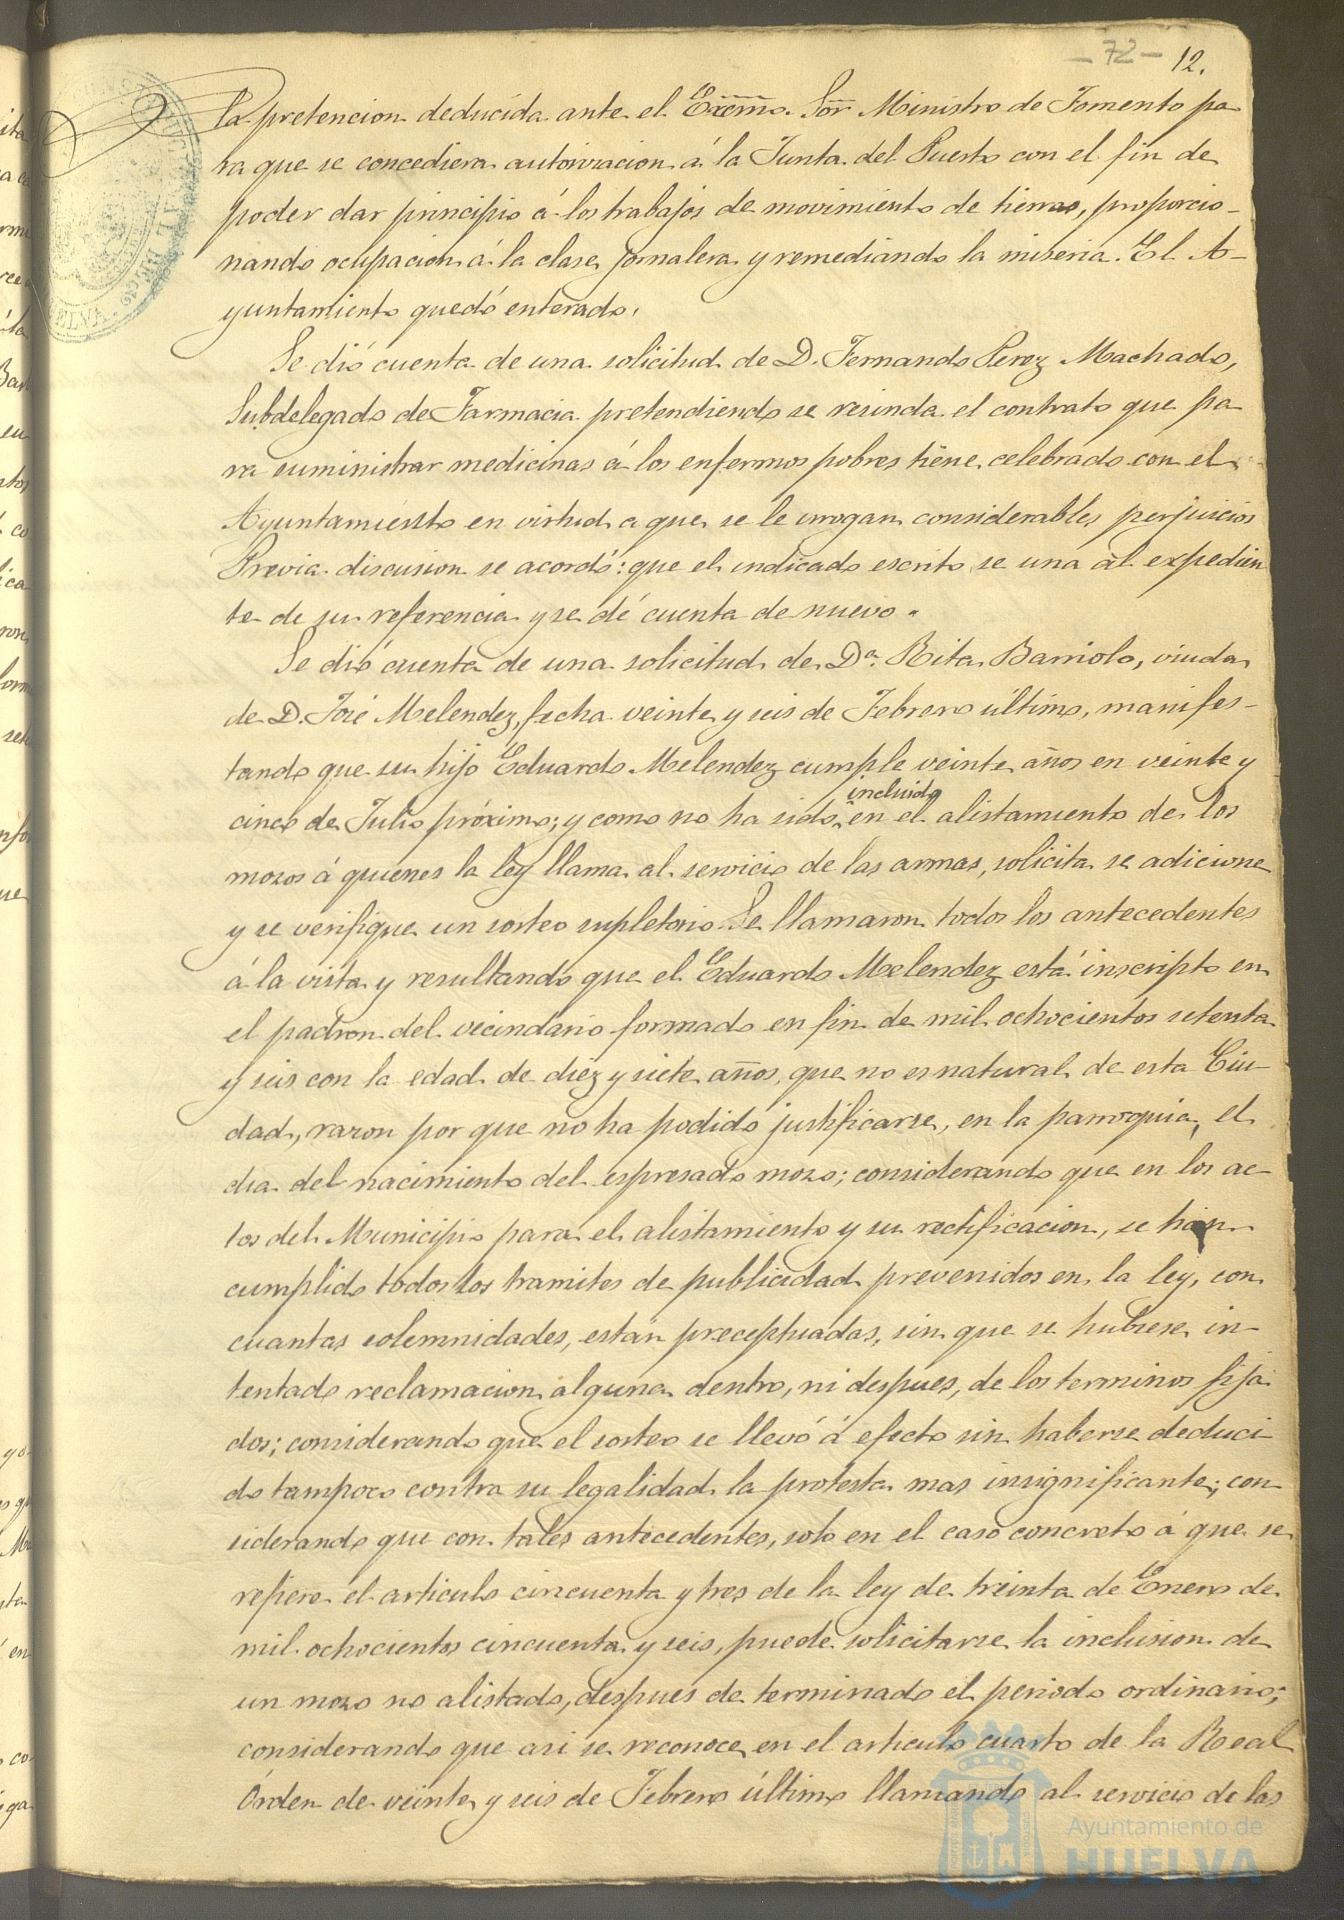 -72- 12.
la pretencion deducida ante el Excmo. Sor. Ministro de Fomento pa
ra que se concediera autorizacion á la Junta del Puerto con el fin de
poder dar principio á los trabajos de movimiento de tierras, proporcio-
nando ocupacion á la clase jornalera y remediando la miseria. El A-
yuntamiento quedó enterado.
Se dió cuenta de una solicitud de D. Fernando Perez Machado,
Subdelegado de Farmacia pretendiendo se resinda el contrato que pa
ra suministrar medicinas á los enfermos pobres tiene celebrado con el
Ayuntamiento en virtud a que se le irrogan considerables perjuicios
Previa discusion se acordó: que el indicado escrito se una al expedien
te de su referencia y se dé cuenta de nuevo.
Se dió cuenta de una solicitud de Da. Rita Barriolo, viuda
de D. José Melendez, fecha veinte y seis de Febrero último, manifes-
tando que su hijo Eduardo Melendez cumple veinte años en veinte y
incluido
cinco de Julio próximo; y como no ha sido en el alistamiento de los
mozos á quienes la ley llama al servicio de las armas, solicita se adicione
y se verifique un sorteo supletorio. Se llamaron todos los antecedentes
á la vista y resultando que el Eduardo Melendez está inscripto en
el padron del vecindario formado en fin de mil ochocientos setenta
y seis con la edad de diez y siete años, que no es natural de esta Ciu-
dad, razon por que no ha podido justificarse, en la parroquia, el
dia del nacimiento del espresado mozo; considerando que en los ac-
tos del Municipio para el alistamiento y su rectificacion, se han
cumplido todos los tramites de publicidad prevenidos en la ley, con
cuantas solemnidades, están preceptuadas, sin que se hubiese in-
tentado reclamacion alguna dentro, ni despues, de los terminos fija
dos; considerando que el sorteo se llevó á efecto sin haberse deduci-
do tampoco contra su legalidad la protesta mas insignificante; con
siderando que con tales antecedentes, solo en el caso concreto á que se
refiere el articulo cincuenta y tres de la ley de treinta de Enero de
mil ochocientos cincuenta y seis, puede solicitarse la inclusion de
un mozo no alistado, despues de terminado el periodo ordinario;
considerando que asi se reconoce en el articulo cuarto de la Real
Órden de veinte y seis de Febrero último llamando al servicio de las
Ayuntamiento de
HUELVA